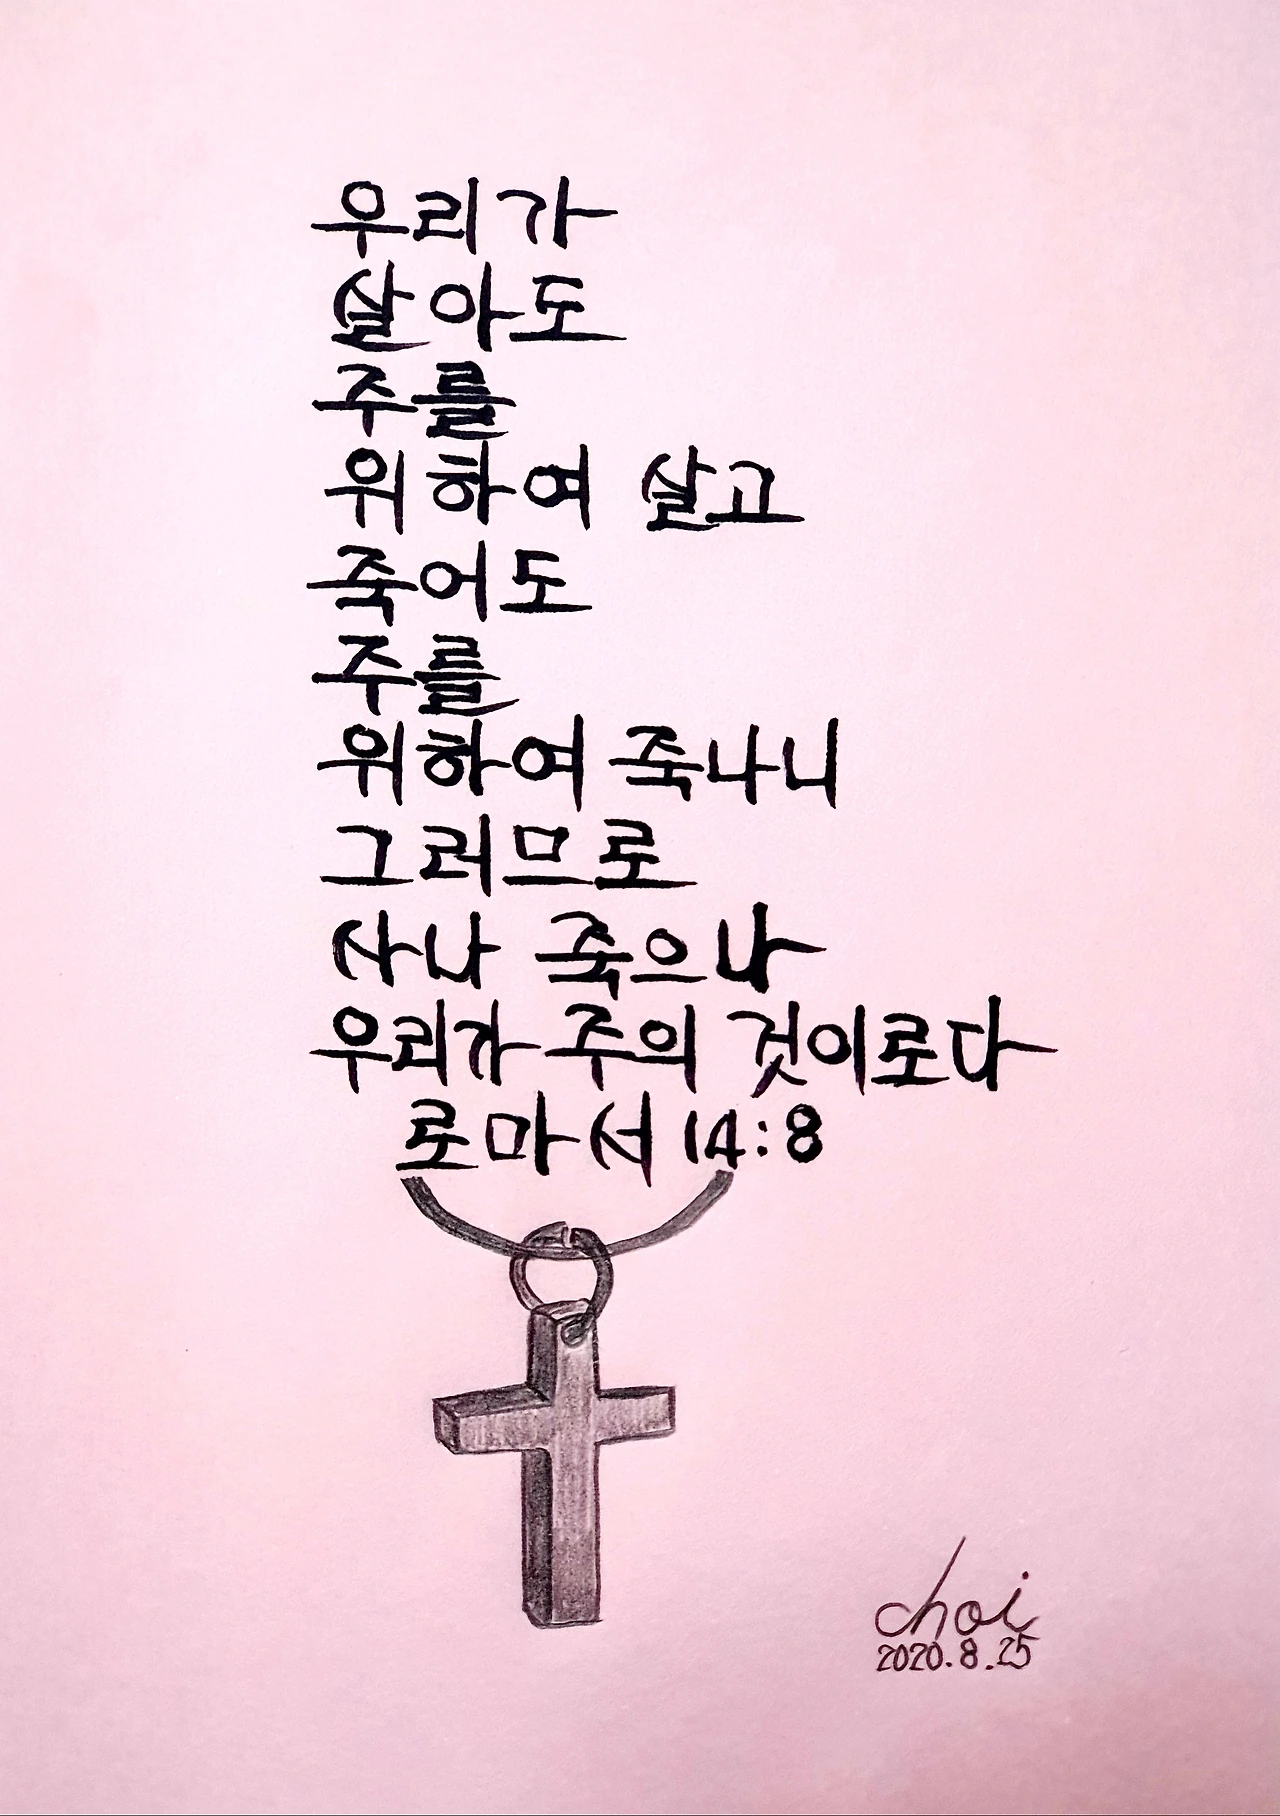 우리가
살아도
주를
위하여 살고
죽어도
주를
위하여 죽나니
그러므로
사나 죽으나
우리가 주의 것이로다
로마서 14:8
choi
2020.8.25